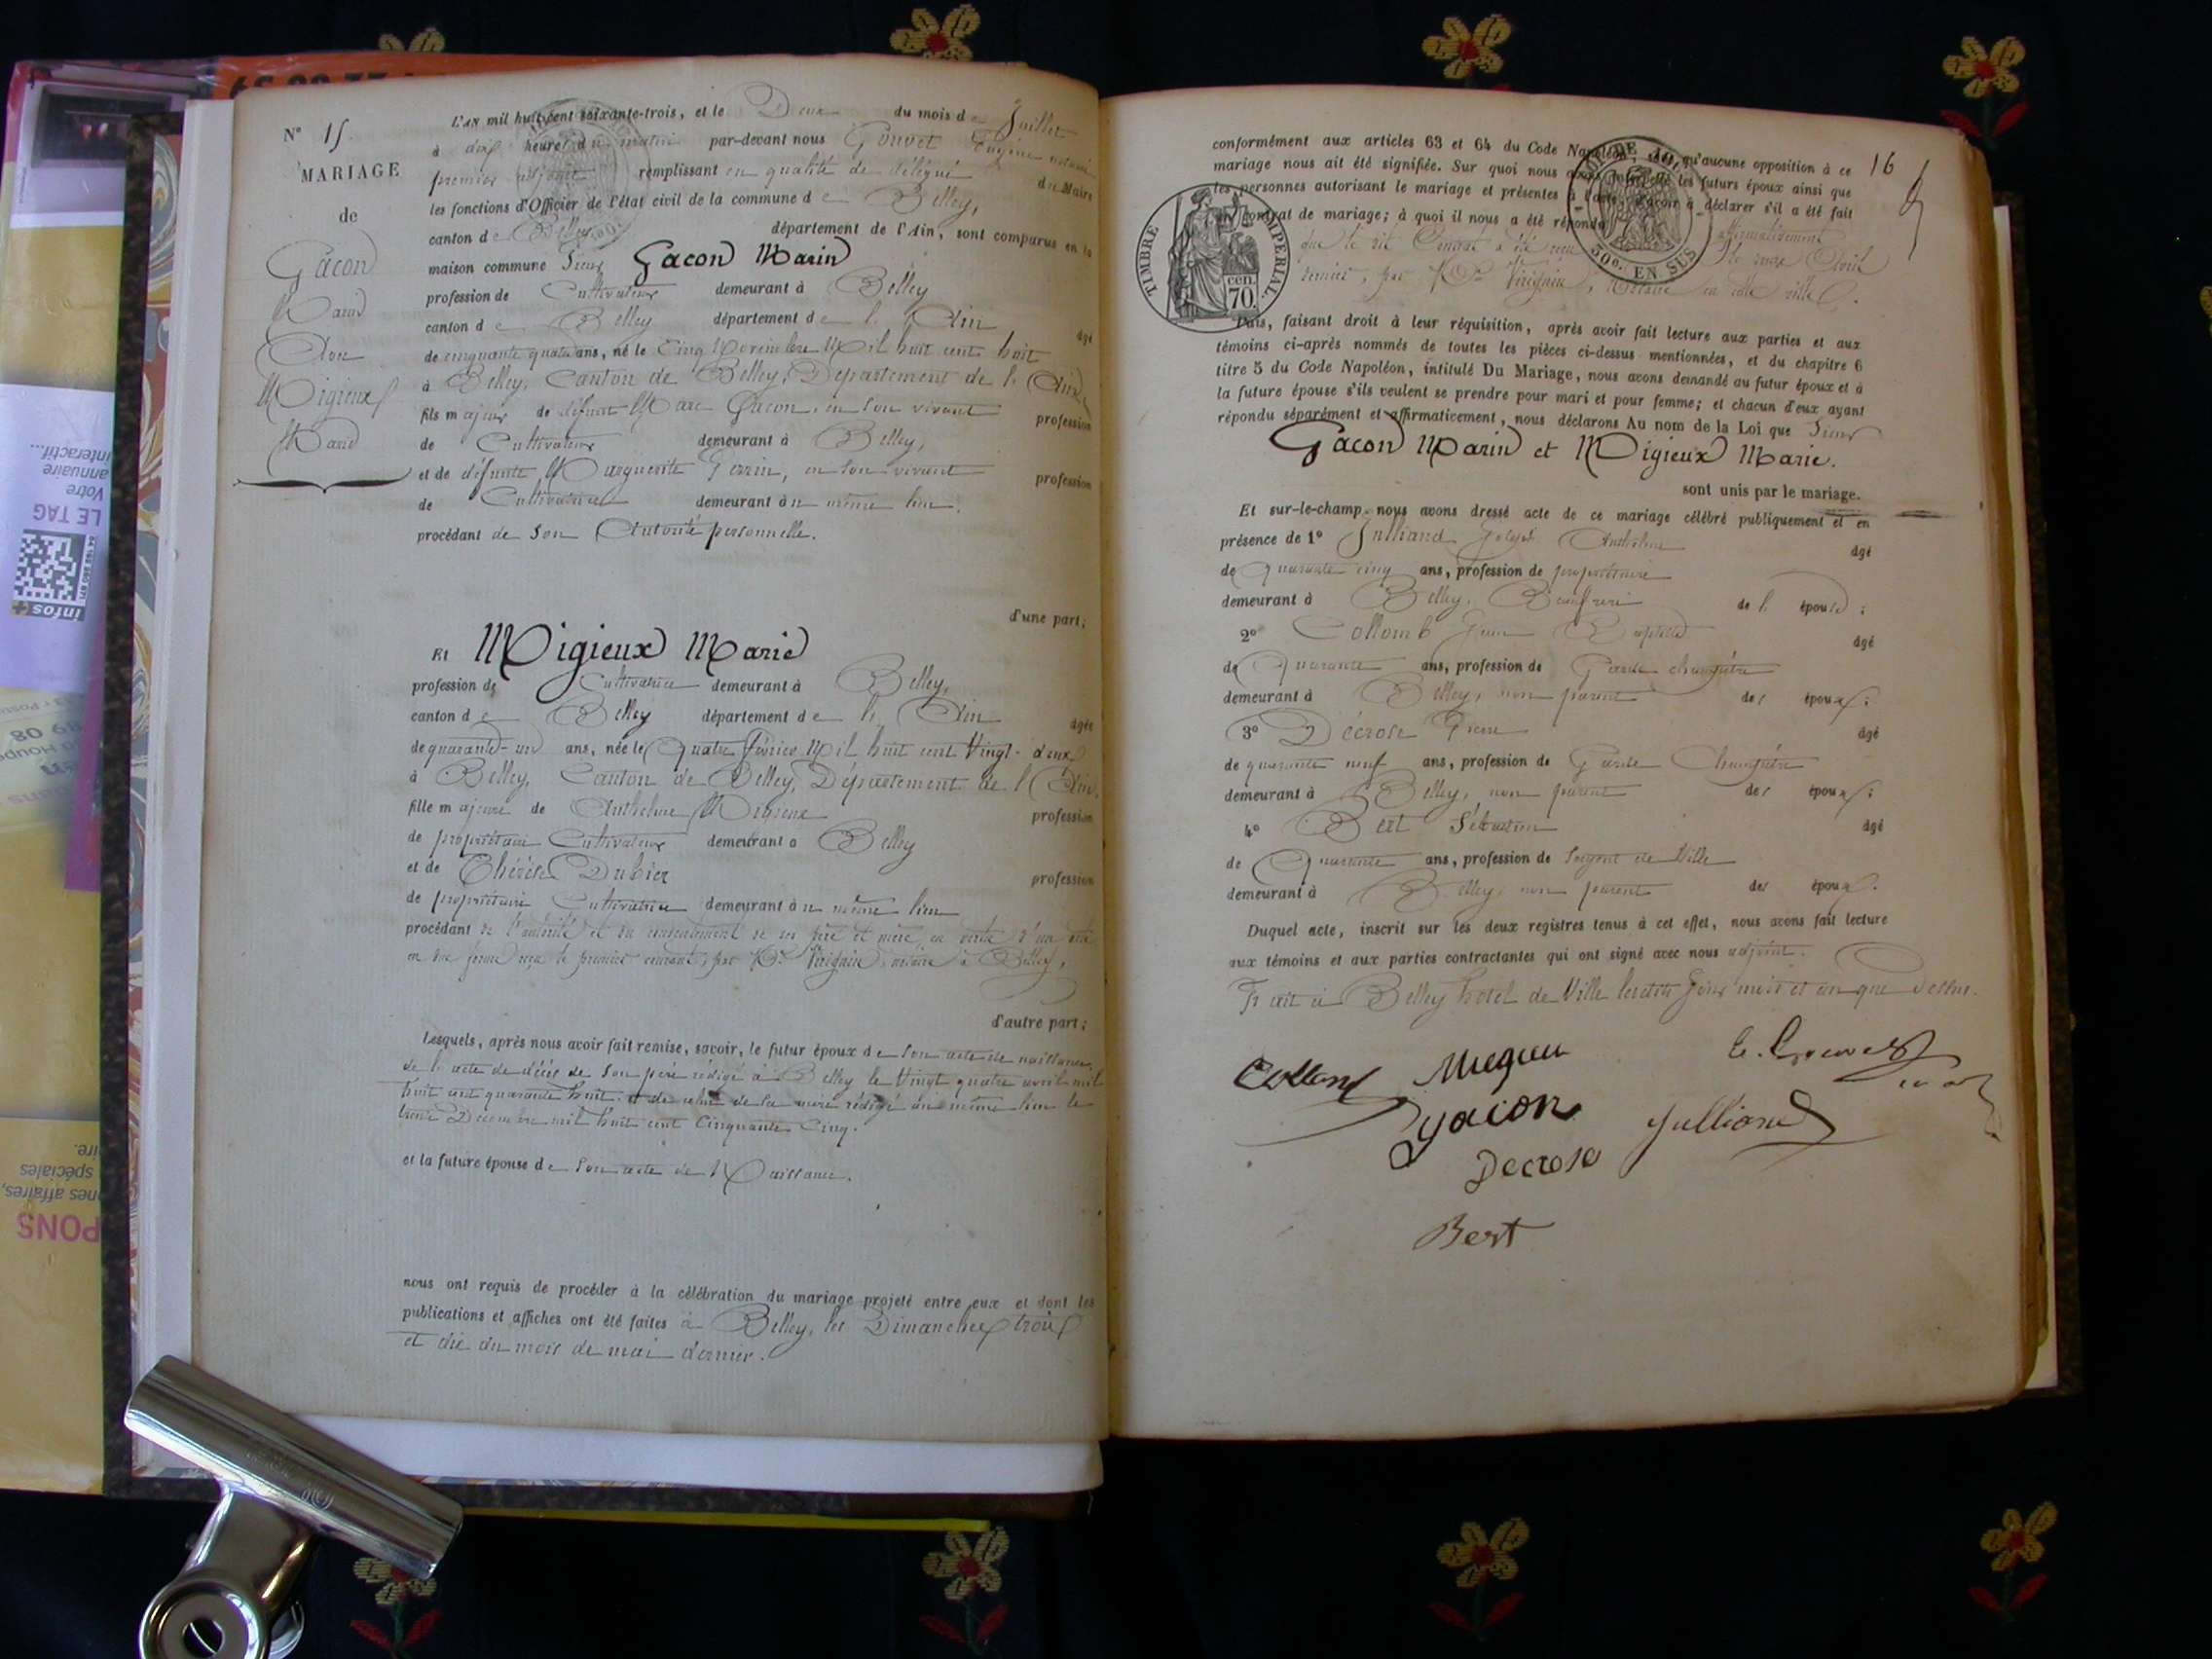 N° 15.
MARIAGE
de
Gacon
Marin
Avec
Migieux
Marie
L'AN mil huit cent soixante-trois, et le Deux du mois de Juillet
à dix heures du matin par-devant nous Gouvet Eugène notaire
premier adjoint remplissant en qualité de délégué du Maire
les fonctions d'Officier de l'état civil de la commune de Belley,
canton de Belley département de l'Ain, sont comparus en la
maison commune Sieur Gacon Marin
profession de Cultivateur demeurant à Belley
canton de Belley département de l'Ain âgé
de cinquante quatre ans, né le Cinq Novembre Mil huit cent huit
à Belley, Canton de Belley, Département de l'Ain
fils majeur de défunt Marc Gacon, en son vivant profession
de Cultivateur demeurant à Belley,
et de défunte Marguerite Perrin, en son vivant profession
de Cultivatrice demeurant au même lieu.
procédant de Son Autorité personnelle.
d'une part;
Et Migieux Marie
profession de Cultivatrice demeurant à Belley,
canton de Belley département de l'Ain âgée
de quarante-un ans, née le Quatre février Mil huit cent Vingt-deux
à Belley, Canton de Belley, Département de l'Ain.
fille majeure de Anthelme Migieux profession
de propriétaire Cultivateur demeurant à Belley
et de Thérèse Dubier profession
de propriétaire Cultivatrice demeurant au même lieu
procédant de l'autorité et du consentement de ses père et mère, en vertu d'un acte
en due forme reçu le premier courant, par Me Virignin, notaire à Belley,
d'autre part;
Lesquels, après nous avoir fait remise, savoir, le futur époux de Son acte de naissance,
de l'acte de décès de Son père rédigé à Belley le Vingt quatre avril mil
huit cent quarante huit; et de celui de sa mère rédigé au même lieu le
trente Décembre mil huit cent Cinquante Cinq.
et la future épouse de Son acte de Naissance.
nous ont requis de procéder à la célébration du mariage projeté entre eux et dont les
publications et affiches ont été faites à Belley, les Dimanches trois
et dix du mois de mai dernier.
16
TIMBRE IMPERIAL.
cen. 70.
50e. EN SUS
conformément aux articles 63 et 64 du Code Napoléon, et qu'aucune opposition à ce
mariage nous ait été signifiée. Sur quoi nous avons interpellé les futurs époux ainsi que
les personnes autorisant le mariage et présentes à l'acte, d'avoir à déclarer s'il a été fait
un contrat de mariage; à quoi il nous a été répondu affirmativement
que le dit Contrat a été reçu le onze Avril
dernier, par Me Virignin, Notaire en cette ville.
Puis, faisant droit à leur réquisition, après avoir fait lecture aux parties et aux
témoins ci-après nommés de toutes les pièces ci-dessus mentionnées, et du chapitre 6
titre 5 du Code Napoléon, intitulé Du Mariage, nous avons demandé au futur époux et à
la future épouse s'ils veulent se prendre pour mari et pour femme; et chacun d'eux ayant
répondu séparément et affirmativement, nous déclarons Au nom de la Loi que Sieur
Gacon Marin et Migieux Marie.
sont unis par le mariage.
Et sur-le-champ nous avons dressé acte de ce mariage célébré publiquement et en
présence de 1° Julliand Joseph Anthelme âgé
de quarante cinq ans, profession de propriétaire
demeurant à Belley, Beaufrère de l'épouse;
2° Collomb Jean Baptiste âgé
de Quarante ans, profession de Garde champêtre
demeurant à Belley, non parent des époux;
3° Décrose Pierre âgé
de quarante neuf ans, profession de Garde Champêtre
demeurant à Belley, non parent des époux;
4° Bert Sébastien âgé
de Quarante ans, profession de Sergent de Ville
demeurant à Belley, non parent des époux.
Duquel acte, inscrit sur les deux registres tenus à cet effet, nous avons fait lecture
aux témoins et aux parties contractantes qui ont signé avec nous adjoint.
Fait à Belley hôtel de Ville les dits Jour mois et an que Dessus.
Collomb
Gacon
Julliand
Decrose
Bert
interactif...
annuaire
Votre
LE TAG
infos+
PONS